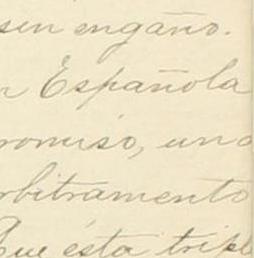 sen engaño.
n Española
romiso, uno
rbitramento
Que ésta triple